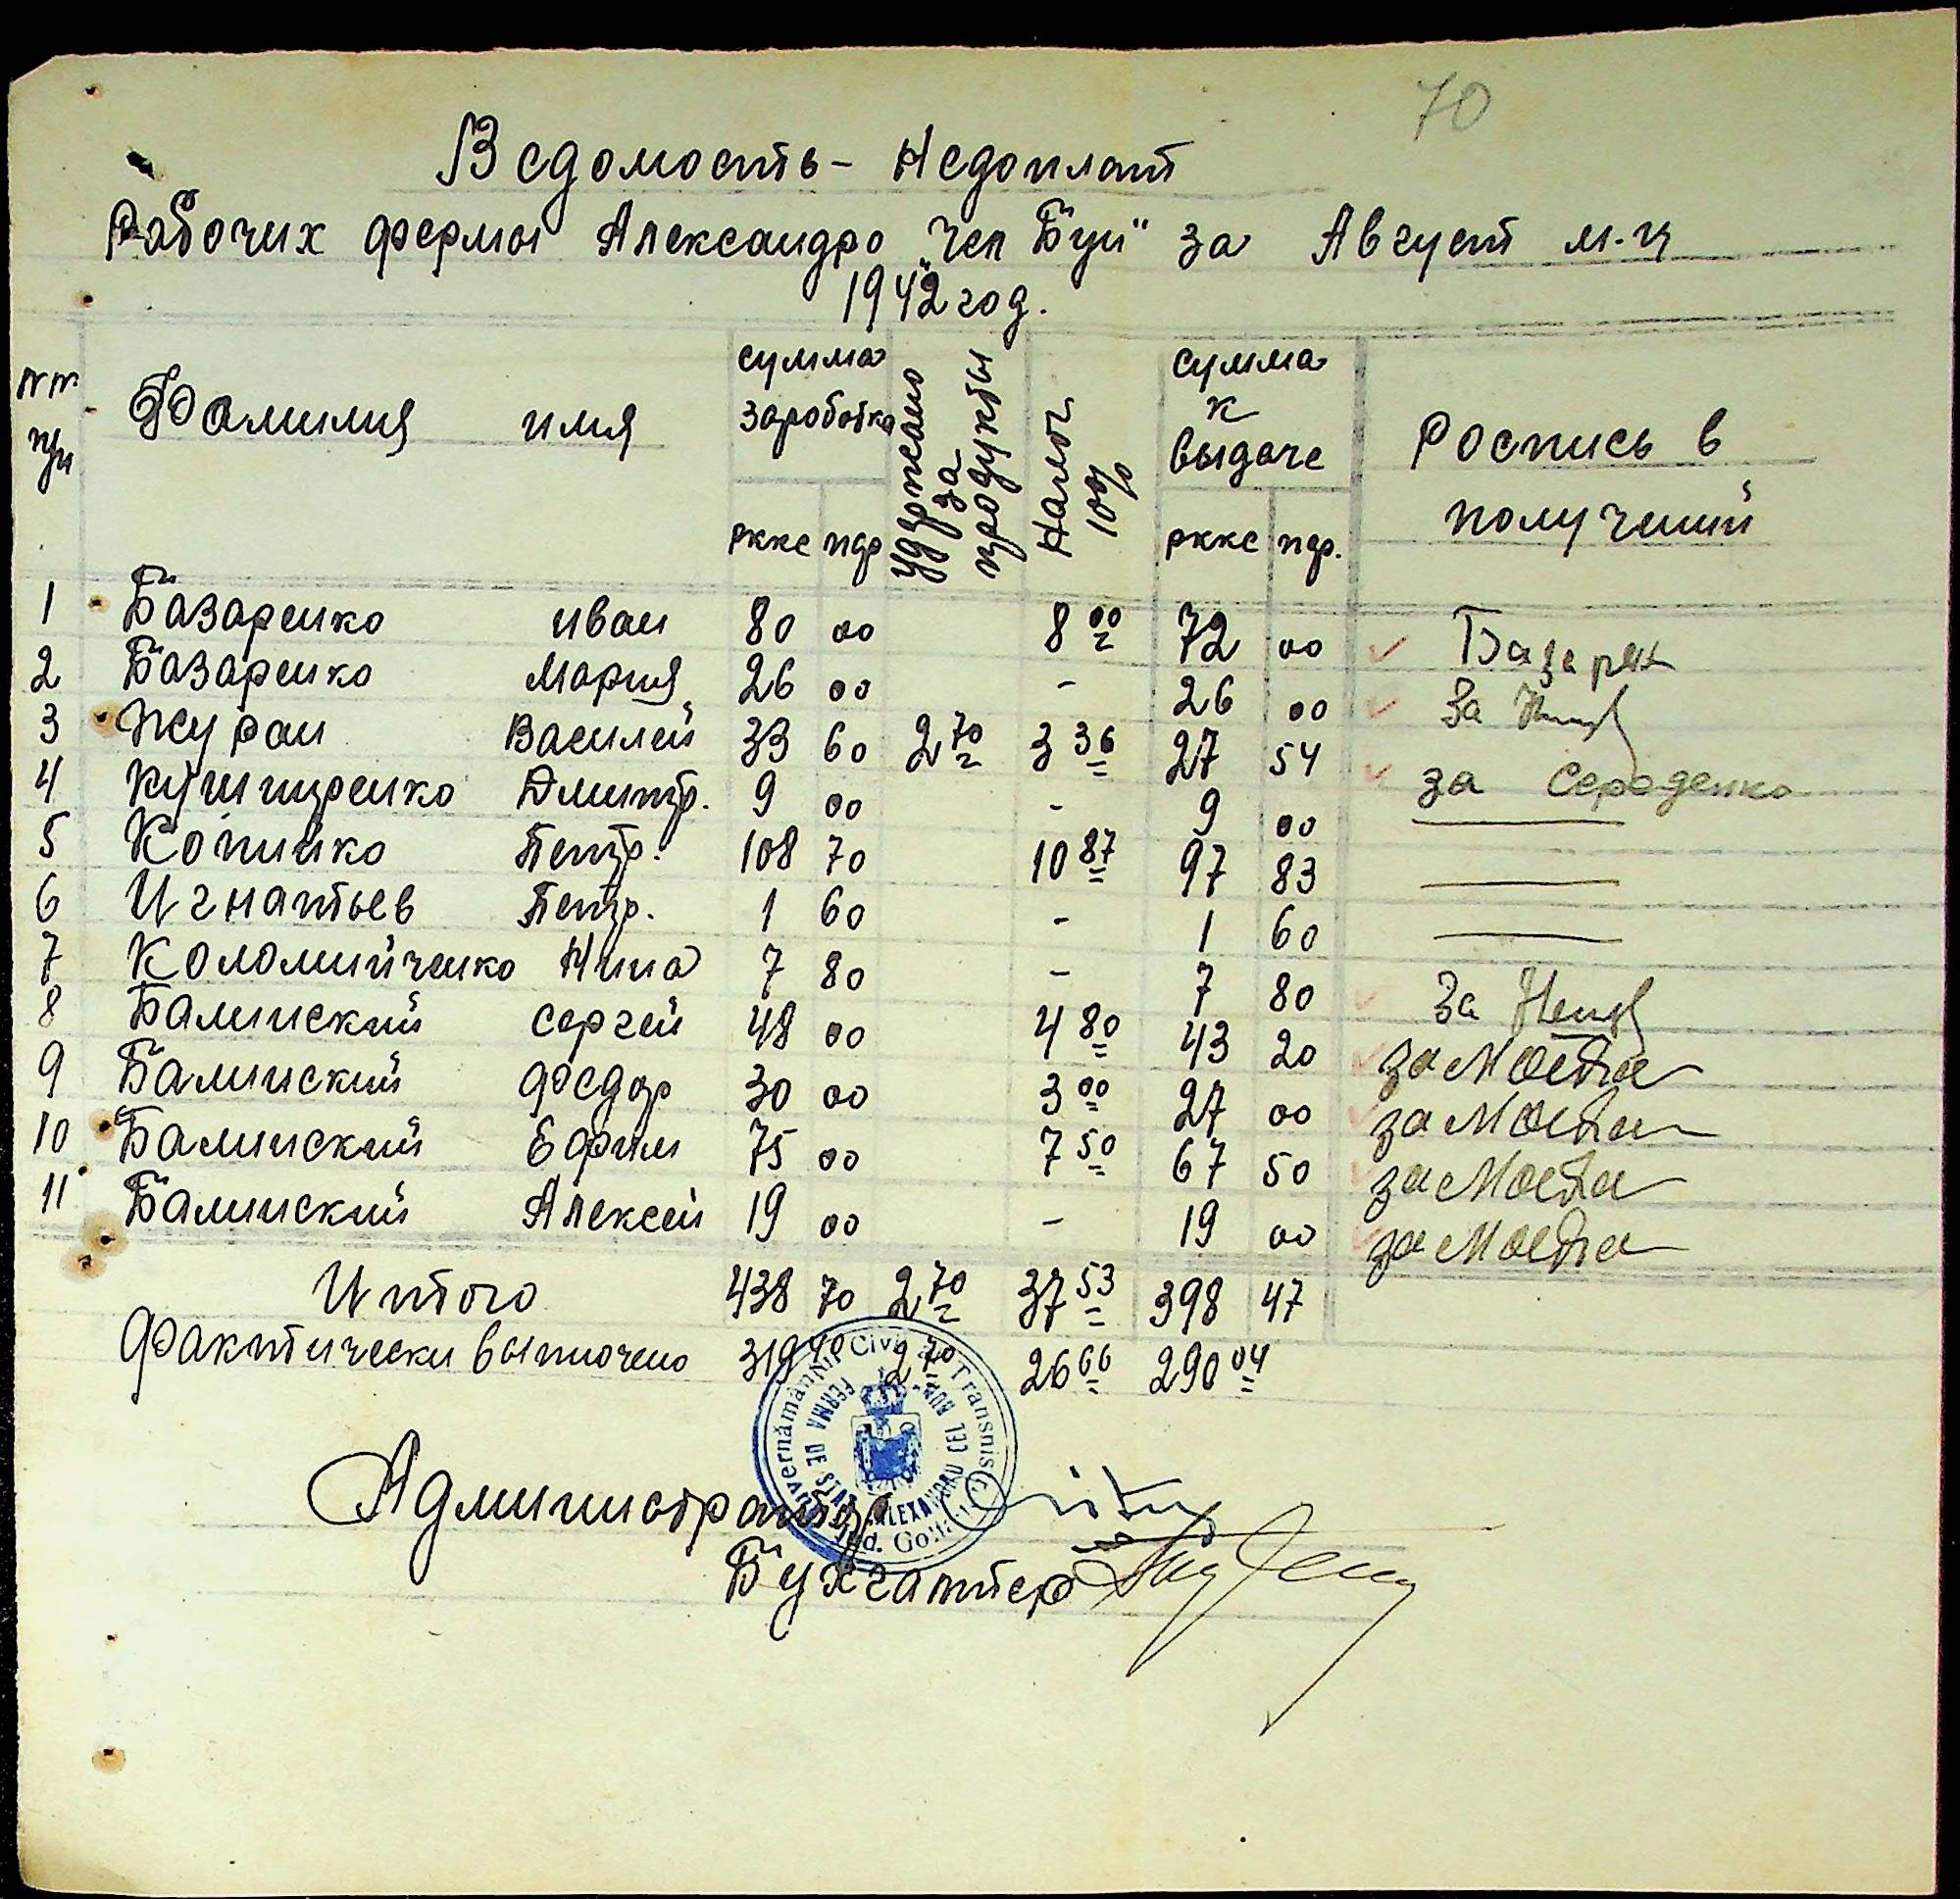 70
Ведомость - Недоплат
Рабочих фермы Александро „Чел Бун" за Август м-ц
1942 год.
Фамилия имя сумма заработка удержано за продукты Налог 10% сумма к выдаче Роспись в получений
рккс пф рккс пф.
1 Базаренко иван 80 00 8 00 72 00 Базарен
2 Базаренко Мария 26 00 - 26 00 За
3 Журан Василий 33 60 2 70 3 36 27 54 за Середенко
4 Кушниренко Дмитр. 9 00 - 9 00
5 Копийко Петр. 108 70 10 87 97 83
6 Игнатьев Петр. 1 60 - 1 60
7 Коломийченко Нина 7 80 - 7 80 За
8 Балинский Сергей 48 00 4 80 43 20 за
9 Балинский Федор 30 00 3 00 27 00 за
10 Балинский Ефим 75 00 7 50 67 50 за
11 Балинский Алексей 19 00 - 19 00 за
Итого 438 70 2 70 37 53 398 47
Фактически выплочено 319 40 2 70 26 66 290 04
Guvernământul Civil al Transnistriei
FERMA DE STAT ALEXANDRU CEL BUN
Jud. Golta
Администратор
Бухгалтер